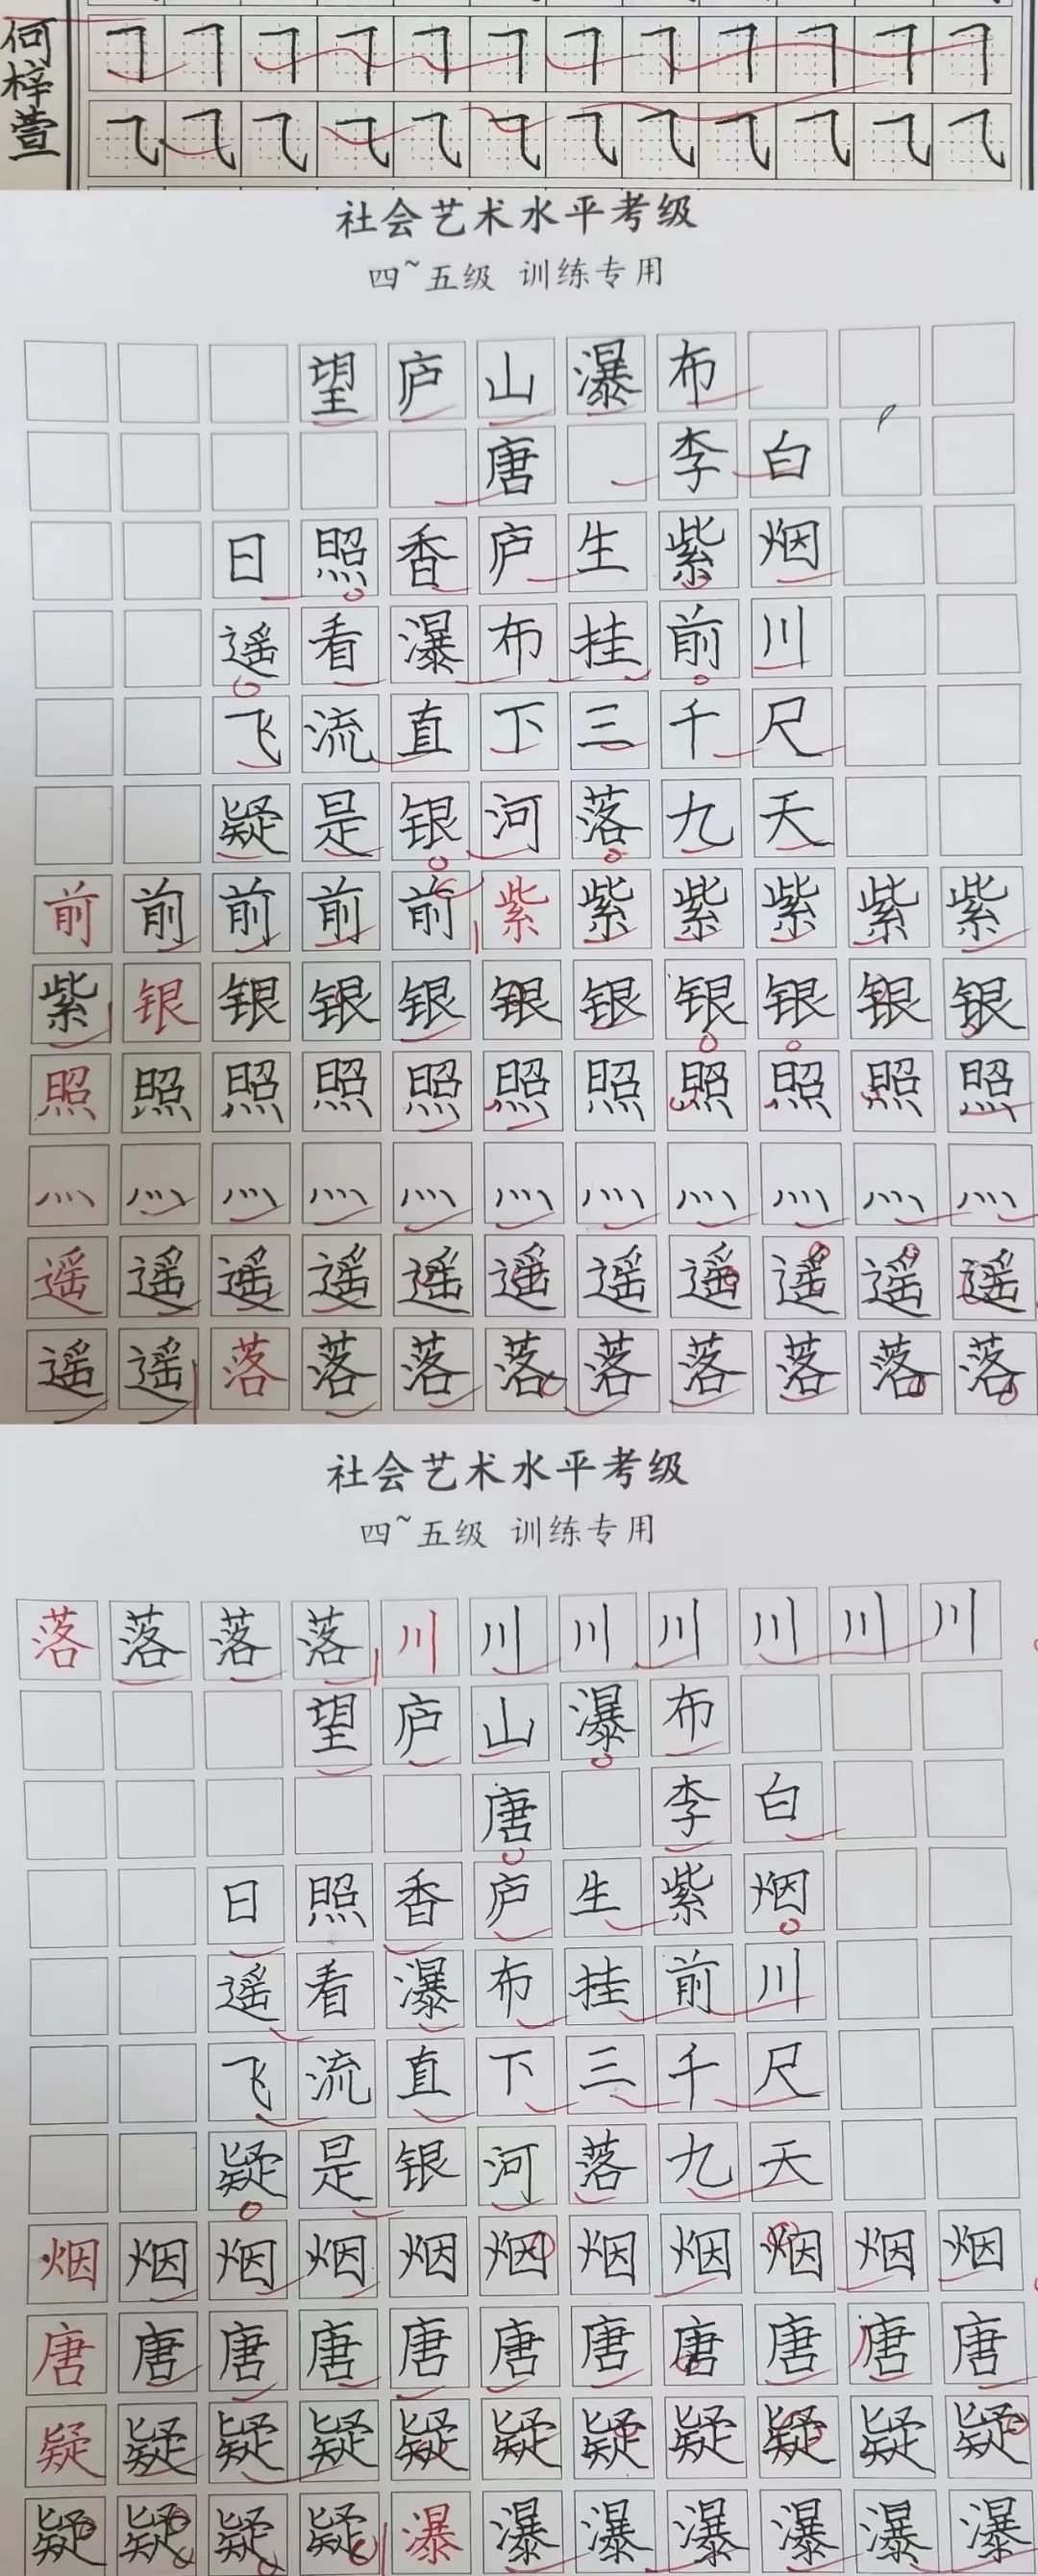 何梓萱
社会艺术水平考级
四~五级 训练专用
望庐山瀑布
唐 李白
日照香庐生紫烟
遥看瀑布挂前川
飞流直下三千尺
疑是银河落九天
前前前前前紫紫紫紫紫紫
紫银银银银银银银银银银
照照照照照照照照照照照
灬灬灬灬灬灬灬灬灬灬灬
遥遥遥遥遥遥遥遥遥遥遥
遥遥落落落落落落落落落
社会艺术水平考级
四~五级 训练专用
落落落落川川川川川川川
望庐山瀑布
唐 李白
日照香庐生紫烟
遥看瀑布挂前川
飞流直下三千尺
疑是银河落九天
烟烟烟烟烟烟烟烟烟烟烟
唐唐唐唐唐唐唐唐唐唐唐
疑疑疑疑疑疑疑疑疑疑疑
疑疑疑疑瀑瀑瀑瀑瀑瀑瀑